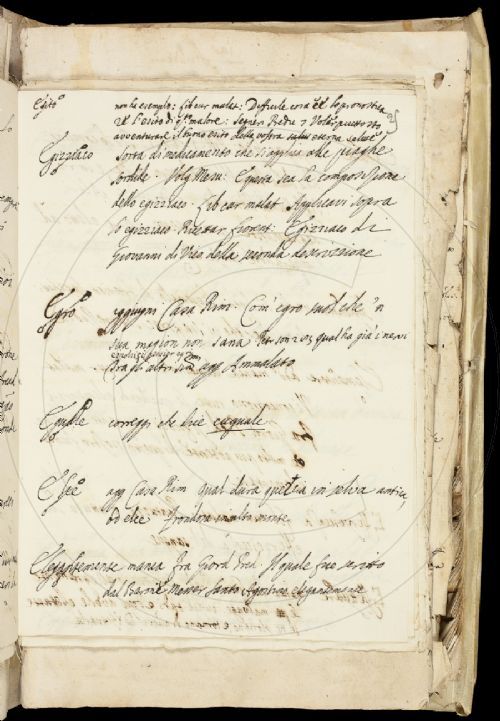 Esito non ha esempio: Lib cur malat: Difficile cosa è lo pronostica
re l'esito di q.to malore: Segneri Pred: 7
avventurare il buono esito della vostra salute eterna
Egizziaco Sorta di medicamento che s'applica alle piaghe
sordide. Volg Mesu: Questa sea la composizione
dello egizziaco. Lib cur malat Applicavi sopra
lo egizziaco. Ricettar fiorent: Egizziaco di
Giovanni di Vico della seconda descrizzione
Egro aggiugni Casa Rim: Com' egro suol che 'n
sua magion non sana Petr son qual ha già i nervi
Tra gli altri agg Ammalato
Eguale correggi che dice eguale
Elce agg Casa Rim qual dura quercia in selva antica,
od elce frondosa in alto monte
Elegantemente manca Fra Giord Pred. Il quale fue scritto
dal Santo Agostino elegantemente